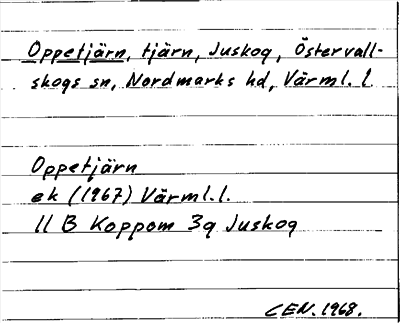 Oppetjärn, tjärn, Juskog, Östervall-
skogs sn, Nordmarks hd, Värml. l
Oppetjärn
ek (1967) Värml. l.
11 B Koppom 3g Juskog
CEN. 1968.